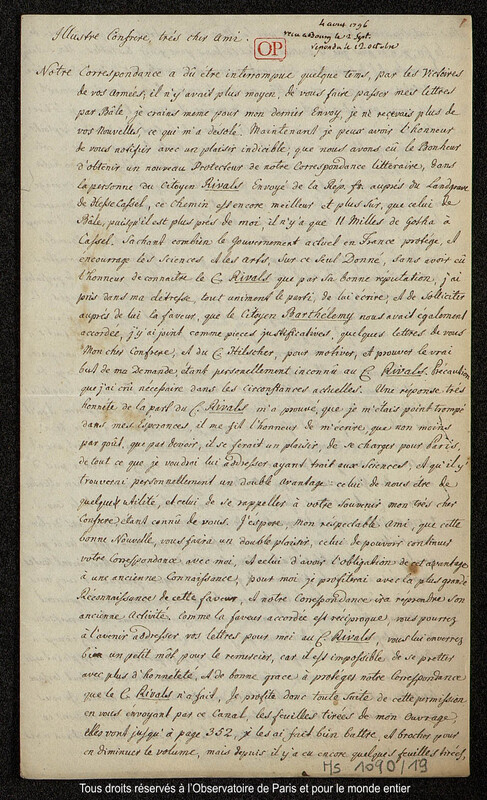 4 aout 1796
recu a Bourg le 2 Sept.
repondu le 12 octobre
1
Illustre Confrere, trés cher Ami.
OP
Notre Correspondance a dû etre interrompue quelque tems, par les Victoires
de vos Armées; il n'y avait plus moyen, de vous faire passer mes lettres
par Bâle, je crains meme pour mon dernier Envoy, je ne recevais plus de
vos Nouvelles, ce qui m'a desolé. Maintenant je peux avoir l'honneur
de vous notifier avec un plaisir indicible, que nous avons eû le Bonheur
d'obtenir un nouveau Protecteur de notre Correspondance litteraire, dans
la personne du Citoyen Rivals Envoyé de la Rep. fr. auprés du Landgrave
de Hesse Cassel, ce chemin est encore meilleur et plus sûr, que celui de
Bâle, puisqu'il est plus prés de moi, il n'y a que 11 Milles de Gotha à
Cassel. Sachant combien le Gouvernement actuel en France protége, et
encourage les Sciences et les Arts, sur ce seul Donné, sans avoir eû
l'honneur de connaitre le C. Rivals que par sa bonne reputation, j'ai
pris dans ma détresse, tout uniment le parti, de lui écrire, et de solliciter
auprés de lui la faveur, que le Citoyen Barthélemy nous avait également
accordée, j'y ai joint comme pieces justificatives, quelques lettres de vous
Mon cher Confrere, et du C. Hilscher, pour motiver, et prouver le vrai
but de ma Demande, étant personellement inconnu au C. Rivals. Précaution
que j'ai crû nécessaire dans les Circonstances actuelles. Une réponse trés
honnéte de la part du C. Rivals m'a prouvé, que je m'étais point trompé
dans mes Esperances, il me fit l'honneur de m'écrire, que non moins
par goût, que par devoir, il se ferait un plaisir, de se charger pour Paris,
de tout ce que je voudrai lui addresser ayant trait aux Sciences, et qu'il y
trouverai personellement un double Avantage: celui de nous etre de
quelque utilité, et celui de se rappeller à votre souvenir mon trés cher
Confrere, étant connû de vous. J'espére, Mon respectable Ami, que cette
bonne Nouvelle, vous faira un double plaisir, celui de pouvoir continuer
votre Correspondance avec moi, et celui d'avoir l'obligation de cet avantage
à une ancienne Connaissance, pour moi je profiterai avec la plus grande
Réconnaissance de cette faveur, et notre Correspondance ira réprendre son
ancienne Activité, comme la faveur accordée est reciproque, vous pourrez
à l'avenir addresser vos lettres pour moi au C. Rivals, vous lui enverrez
bien un petit môt pour le remercier, car il est impossible de se pretter
avec plus d'honnéteté, et de bonne grace à protéger notre correspondence
que le C. Rivals n'a fait. Je profite donc toute suite de cette permission
en vous envoyant par ce Canal, les feuilles tirées de mon Ouvrage,
elles vont jusqu'à page 352, je les ai fait bien battre, et brocher pour
en diminuer le volume, mais depuis il y a eu encore quelques feuilles tirées,
Ms 1090/19
Tous droits réservés à l'Observatoire de Paris et pour le monde entier